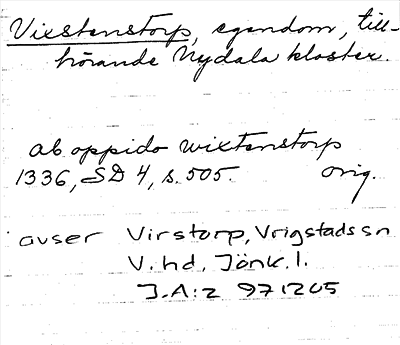 Vixstenstorp, egendom, till-
hörande Nydala kloster.
ab oppido wixtenstorp
1336, SD 4, s. 505. orig.
avser Virstorp, Vrigstads sn
V. hd, Jönk. l.
J.A:z 971205